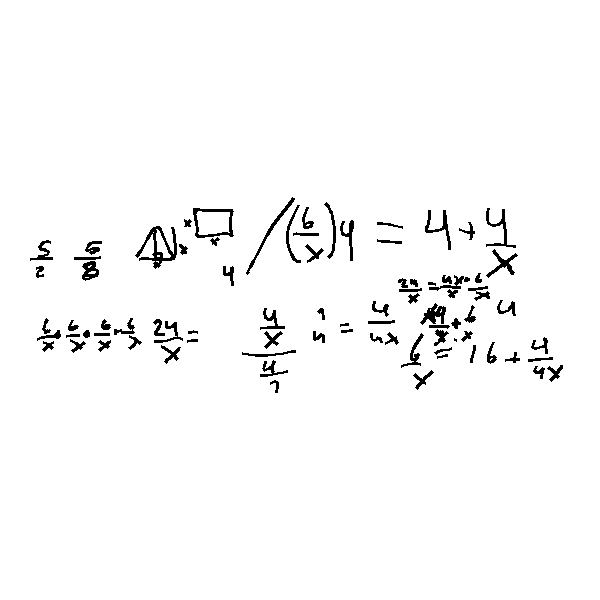 5/2 5/8 x x x 4 / (6/x)4 = 4 + 4/x
24/x = 4x/x + 6/x 4
6/x + 6/x + 6/x + 6/x 24/x = (4/x)/(4/1) 1/4 = 4/4x
6/x = 16 + 4/4x